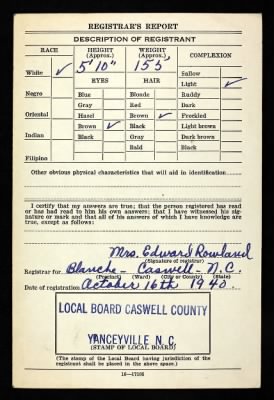 REGISTRAR'S REPORT
DESCRIPTION OF REGISTRANT
RACE HEIGHT (Approx.) WEIGHT (Approx.) COMPLEXION
White ✓ 5' 10" 155 Sallow
EYES HAIR Light ✓
Negro Blue Blonde Ruddy
Gray Red Dark
Oriental Hazel Brown ✓ Freckled
Brown ✓ Black Light brown
Indian Black Gray Dark brown
Bald Black
Filipino
Other obvious physical characteristics that will aid in identification
I certify that my answers are true; that the person registered has read
or has had read to him his own answers; that I have witnessed his sig-
nature or mark and that all of his answers of which I have knowledge are
true, except as follows:
Mrs. Edward Rowland
(Signature of registrar)
Registrar for Blanche - Caswell - N.C.
(Precinct) (Ward) (City or County) (State)
Date of registration October 16th 1940.
LOCAL BOARD CASWELL COUNTY
YANCEYVILLE N. C.
(STAMP OF LOCAL BOARD)
(The stamp of the Local Board having jurisdiction of the
registrant shall be placed in the above space.)
16-17105